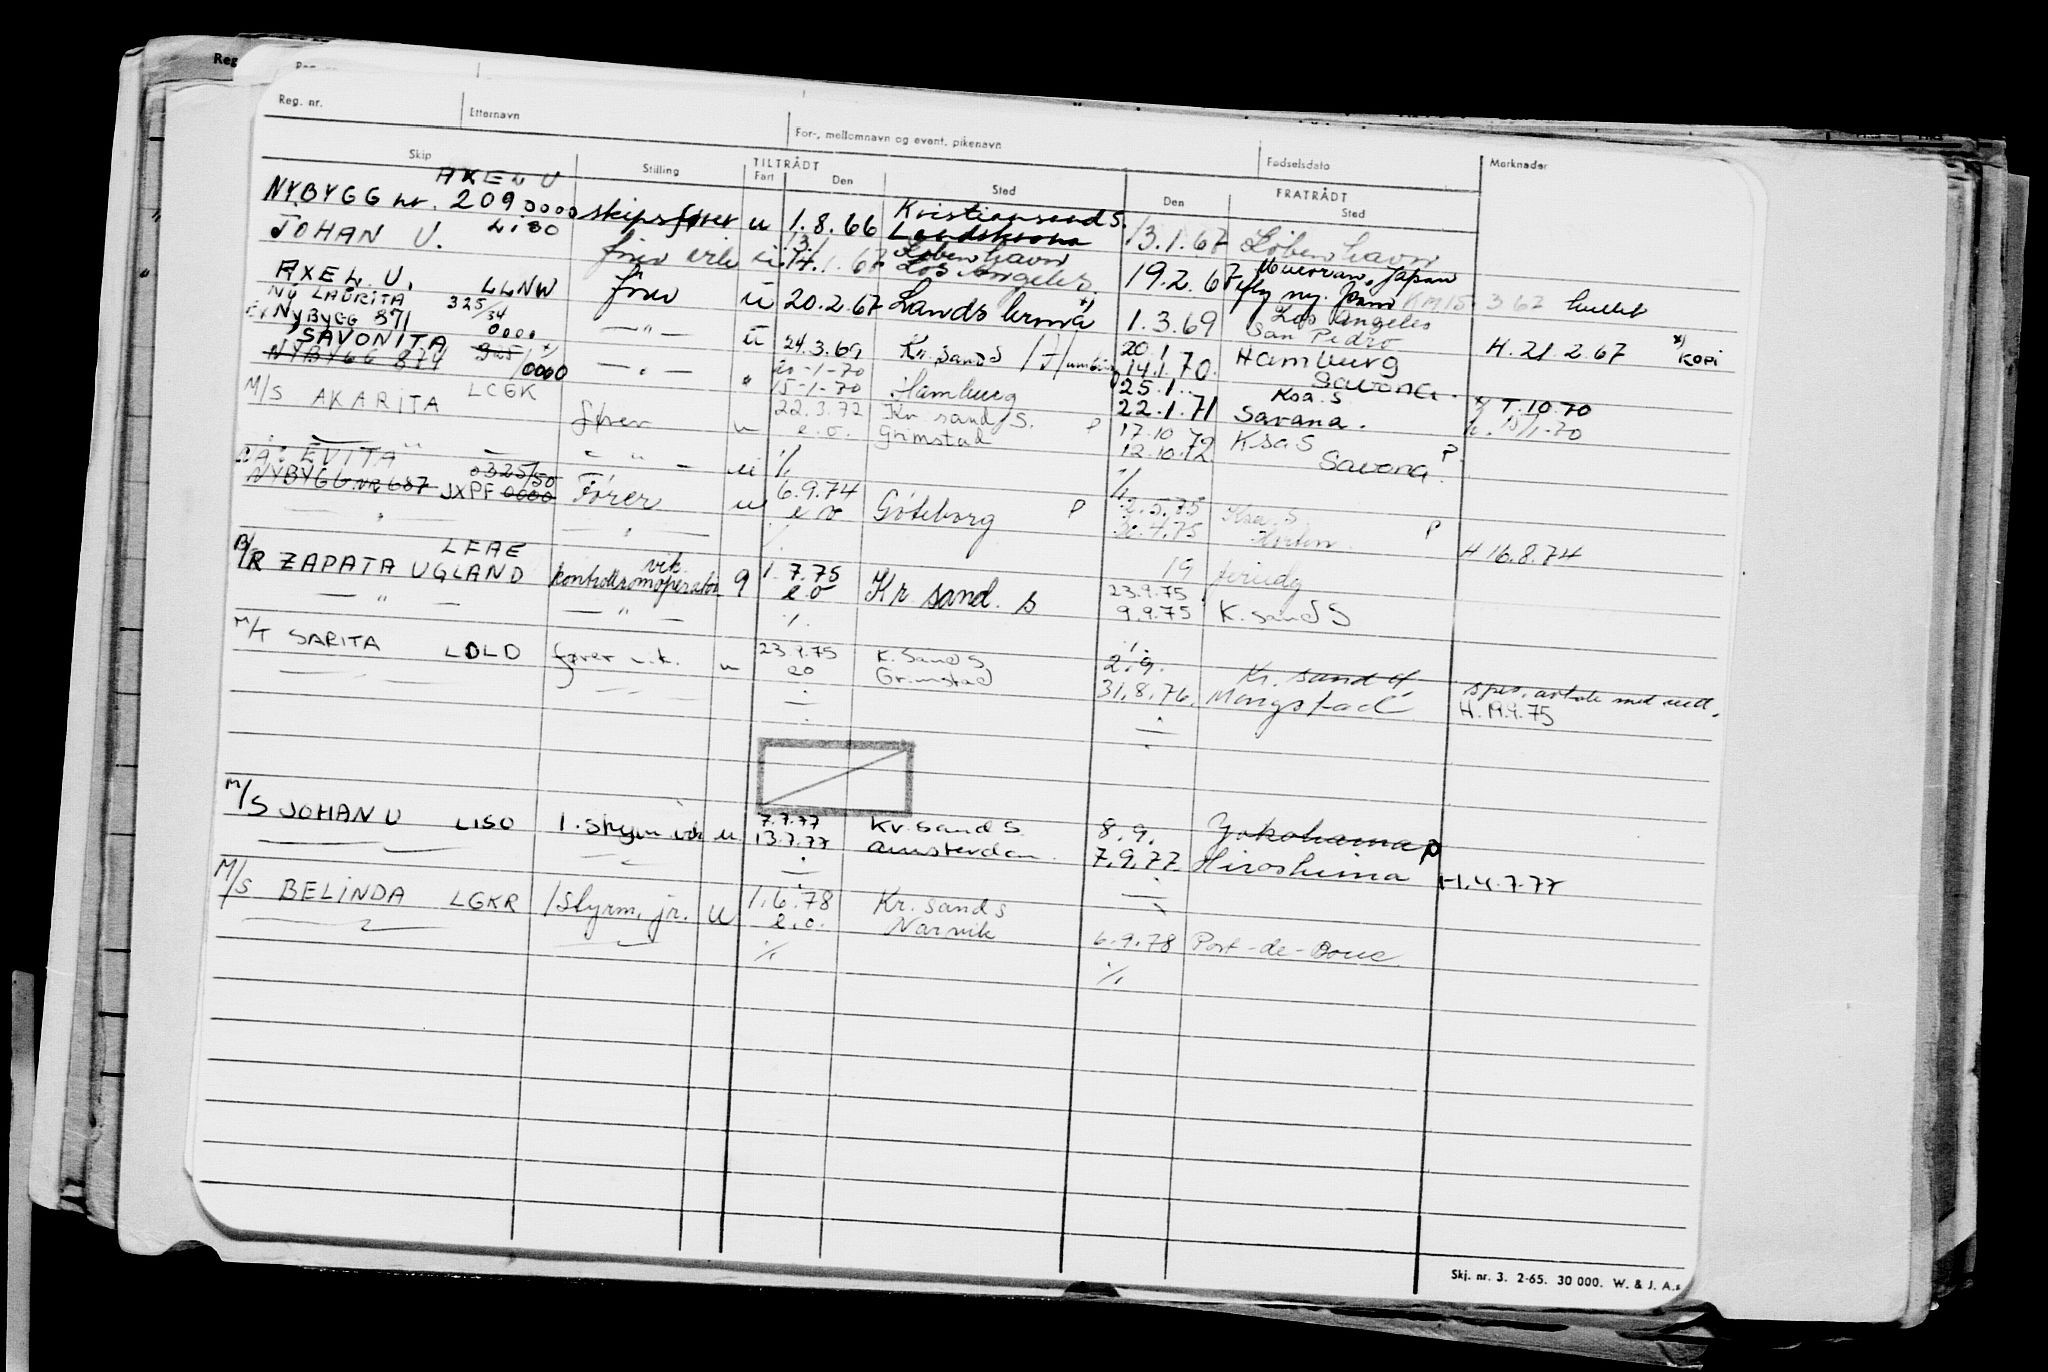 Reg. nr. Etternavn For-, mellomnavn og event. pikenavn Fødselsdato Merknader
Skip Stilling TILTRÅDT FRATRÅDT
Fart Den Sted Den Sted
AXEL U
NYBYGG nr. 209 0000 skipsfører u 1.8.66 Kristiansand S. 13.1.67 København
Landskrona
JOHAN U. LISO 13.1 København
14.1.67 Los Angeles 19.2.67 Muroran, Japan
AXEL U. LLNW fører u 20.2.67 Landskrona 1.3.69 Los Angeles H. 21.2.67 KOPI
San Pedro
NY LAURITA 325/34
EX NYBYGG 871 0000 — " — u 24.3.69 Kr. sand S / Hamburg 20.1 Hamburg
14.1.70
SAVONITA
NYBYGG 874 325/0000 — " — " 20-1-70 25.1 Savona T.10.70
15-1-70 Hamburg 22.1.71 Savana. 15/1-70
Ksa. S
M/S AKARITA LCGK fører u 22.3.72 Kr. sand S. P 17.10.72 Ksa S P
e.o. Grimstad 12.10.72 Savona.
— " — — " — u % %
EVITA 0325/50
NYBYGG NR 687 JXPF 0000 Fører u 6.9.74 Göteborg P 2.5.75 Ksa. S P H 16.8.74
e o 30.4.75 Horten
— " — — " —
B/R ZAPATA UGLAND LFAE vik. kontrollromoperatør 9 1.7.75 Kr. sand. S 19 feriedg
e o 23.9.75
— " — — " — % 9.9.75 K. sand S
M/T SARITA LDLD fører vik. u 23.9.75 K. Sand S 2.9. Kr. sand S spes. avtale med red.
eo Grimstad 31.8.76. Mongstad H. 19.9.75
M/S JOHAN U LISO 1. styrm vik u 7.7.77 Kr. sand S 8.9. Yokohama P
13.7.77 Amsterdam. 7.9.77 Hiroshima H. 4.7.77
M/S BELINDA LGKR 1 styrm. jr. u 1.6.78 Kr. sand S
e.o. Narvik 6.9.78 Port-de-Bouc.
% %
Skj. nr. 3. 2-65. 30 000. W. & J. A.s